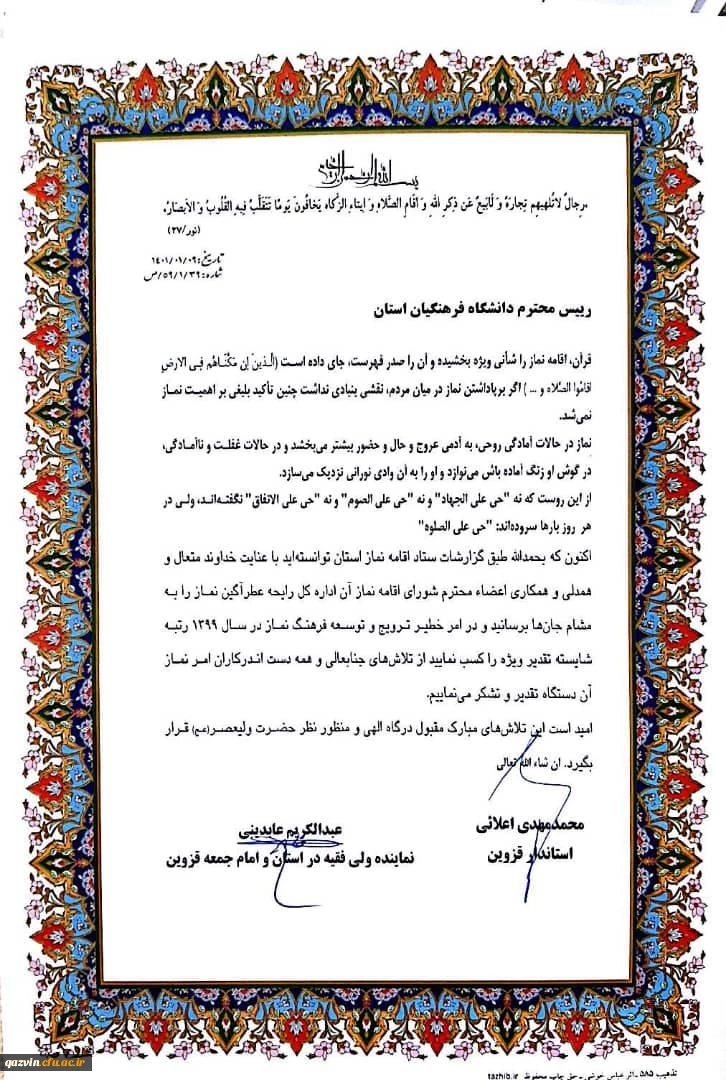 بسم الله الرحمن الرحیم
رجالٌ لاتُلهیهِم تِجارَهُ وَ لابَیعٌ عَن ذِکرِ اللهِ وَ اقامِ الصَّلاهِ وَ ایتاءِ الزَّکاه یَخافُونَ یَوماً تَتَقَلَّبُ فیهِ القُلُوبُ وَ الاَبصارُ،
(نور/۳۷)
تاریخ: ۱۴۰۱/۰۱/۰۹
شماره: ۵۹/۱/۳۹/ص
رییس محترم دانشگاه فرهنگیان استان
قرآن، اقامه نماز را شأنی ویژه بخشیده و آن را صدر فهرست، جای داده است (الَّذینَ اِن مَکَّنّاهُم فِی الاَرضِ
اقامُوا الصَّلاه و ... ) اگر برپاداشتن نماز در میان مردم، نقشی بنیادی نداشت چنین تأکید بلیغی بر اهمیت نماز
نمی‌شد.
نماز در حالات آمادگی روحی، به آدمی عروج و حال و حضور بیشتر می‌بخشد و در حالات غفلت و ناآمادگی،
در گوش او زنگ آماده باش می‌نوازد و او را به آن وادی نورانی نزدیک می‌سازد.
از این روست که نه "حی علی الجهاد" و نه "حی علی الصوم" و نه "حی علی الانفاق" نگفته‌اند، ولی در
هر روز بارها سروده‌اند: "حی علی الصلوه"
اکنون که بحمدالله طبق گزارشات ستاد اقامه نماز استان توانسته‌اید با عنایت خداوند متعال و
همدلی و همکاری اعضاء محترم شورای اقامه نماز آن اداره کل رایحه عطرآگین نماز را به
مشام جان‌ها برسانید و در امر خطیر ترویج و توسعه فرهنگ نماز در سال ۱۳۹۹ رتبه
شایسته تقدیر ویژه را کسب نمایید از تلاش‌های جنابعالی و همه دست اندرکاران امر نماز
آن دستگاه تقدیر و تشکر می‌نماییم.
امید است این تلاش‌های مبارک مقبول درگاه الهی و منظور نظر حضرت ولیعصر(عج) قرار
بگیرد. ان شاء الله تعالی
محمدمهدی اعلائی
استاندار قزوین
عبدالکریم عابدینی
نماینده ولی فقیه در استان و امام جمعه قزوین
تذهیب ۵۸۵ - اثر عباس خوشی - حق چاپ محفوظ tazhib.ir
qazvin.cfu.ac.ir